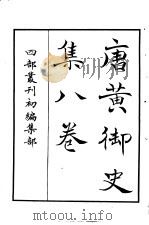 唐黄御史
集八卷
四部叢刊初編集部
mtoou.info